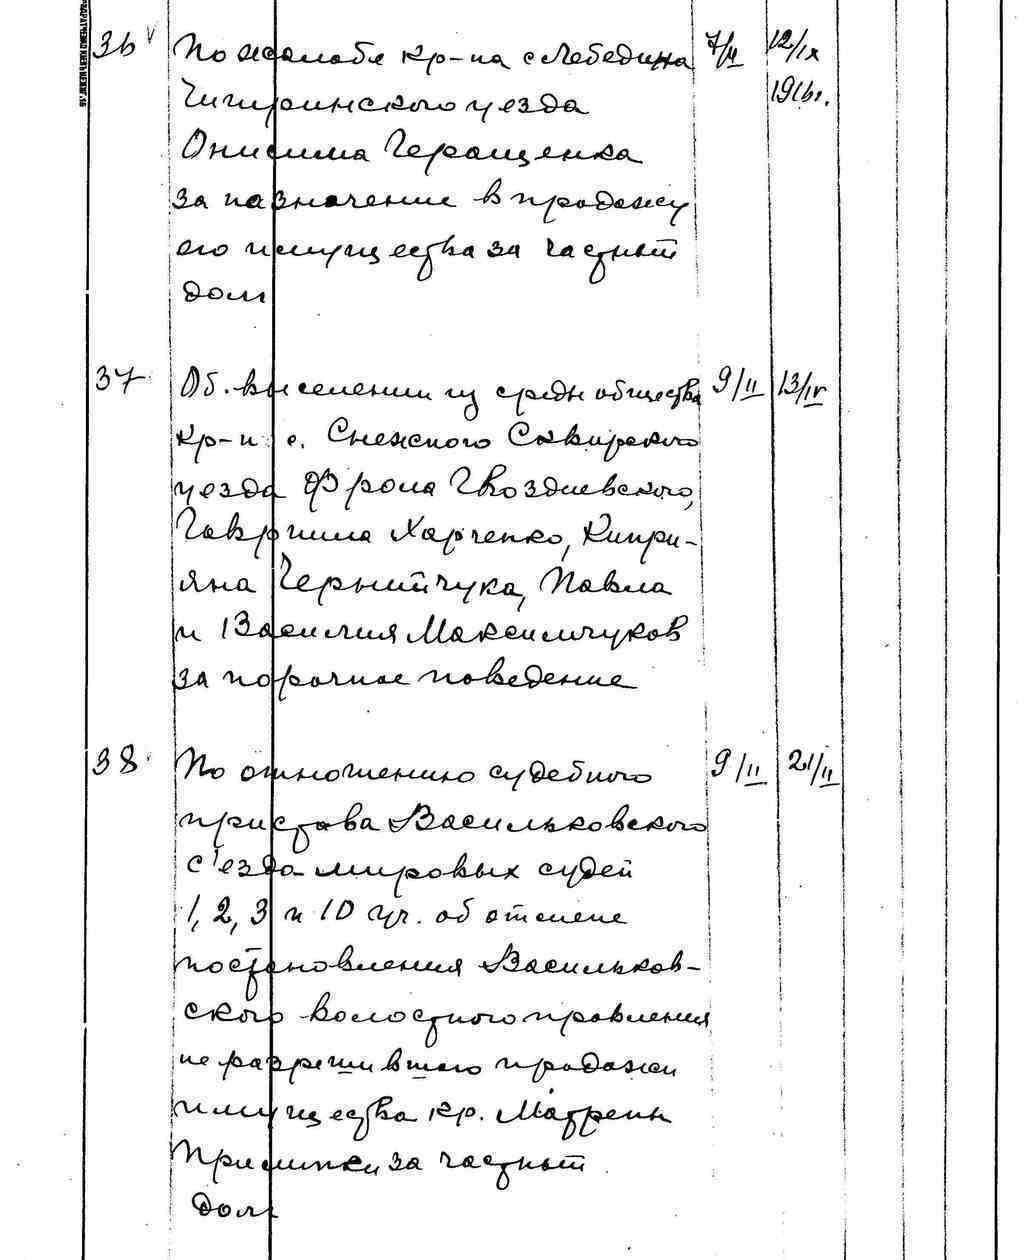 36 По жалобе кр-на с Лебедина 7/II 12/IX
Чигиринского уезда 1916г.
Онисима Геращенка
за назначение в продажу
его имущества за частный
долг
37 Об. выселении из среды общества 9/II 13/IV
кр-н с. Снежного Сквирского
уезда Фрола Гвоздиевского,
Гавриила Харченко, Киприя-
яна Чернийчука, Павла
и Василия Максимчуков
за порочное поведение
38 По отношению судебного 9/II 21/II
пристава Васильковского
с'езда мировых судей
1, 2, 3 и 10 уч. об отмене
постановления Васильков-
ского волостного правления
не разрешившего продажи
имущества кр. Матрены
за частный
долг